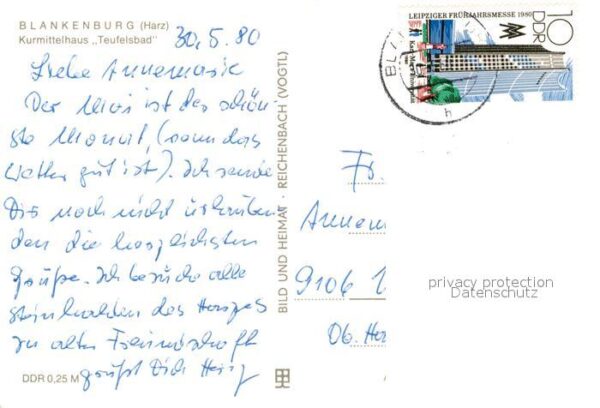 BLANKENBURG (Harz)
Kurmittelhaus „Teufelsbad"
30.5.80
Liebe Annemarie
Der Mai ist der schön-
ste Monat, (wenn das
Wetter gut ist). Ich sende
Dir noch nicht
den die herzlichsten
Grüße. Ich besuche alle
des Harzes
In alter Freundschaft
grüßt Dich
DDR 0,25 M
BILD UND HEIMAT · REICHENBACH (VOGTL)
LEIPZIGER FRÜHJAHRSMESSE 1980
10
DDR
BLAN
h
Fr.
Annem
9106
Ob.
privacy protection
Datenschutz